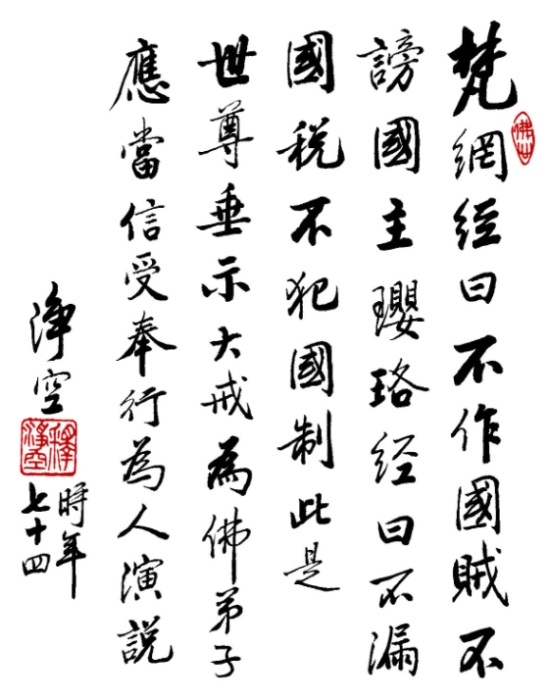 梵網經曰不作國賊不
謗國主瓔珞經曰不漏
國稅不犯國制此是
世尊垂示大戒為佛弟子
應當信受奉行為人演說
淨空
時年
七十四
佛曰
釋淨空